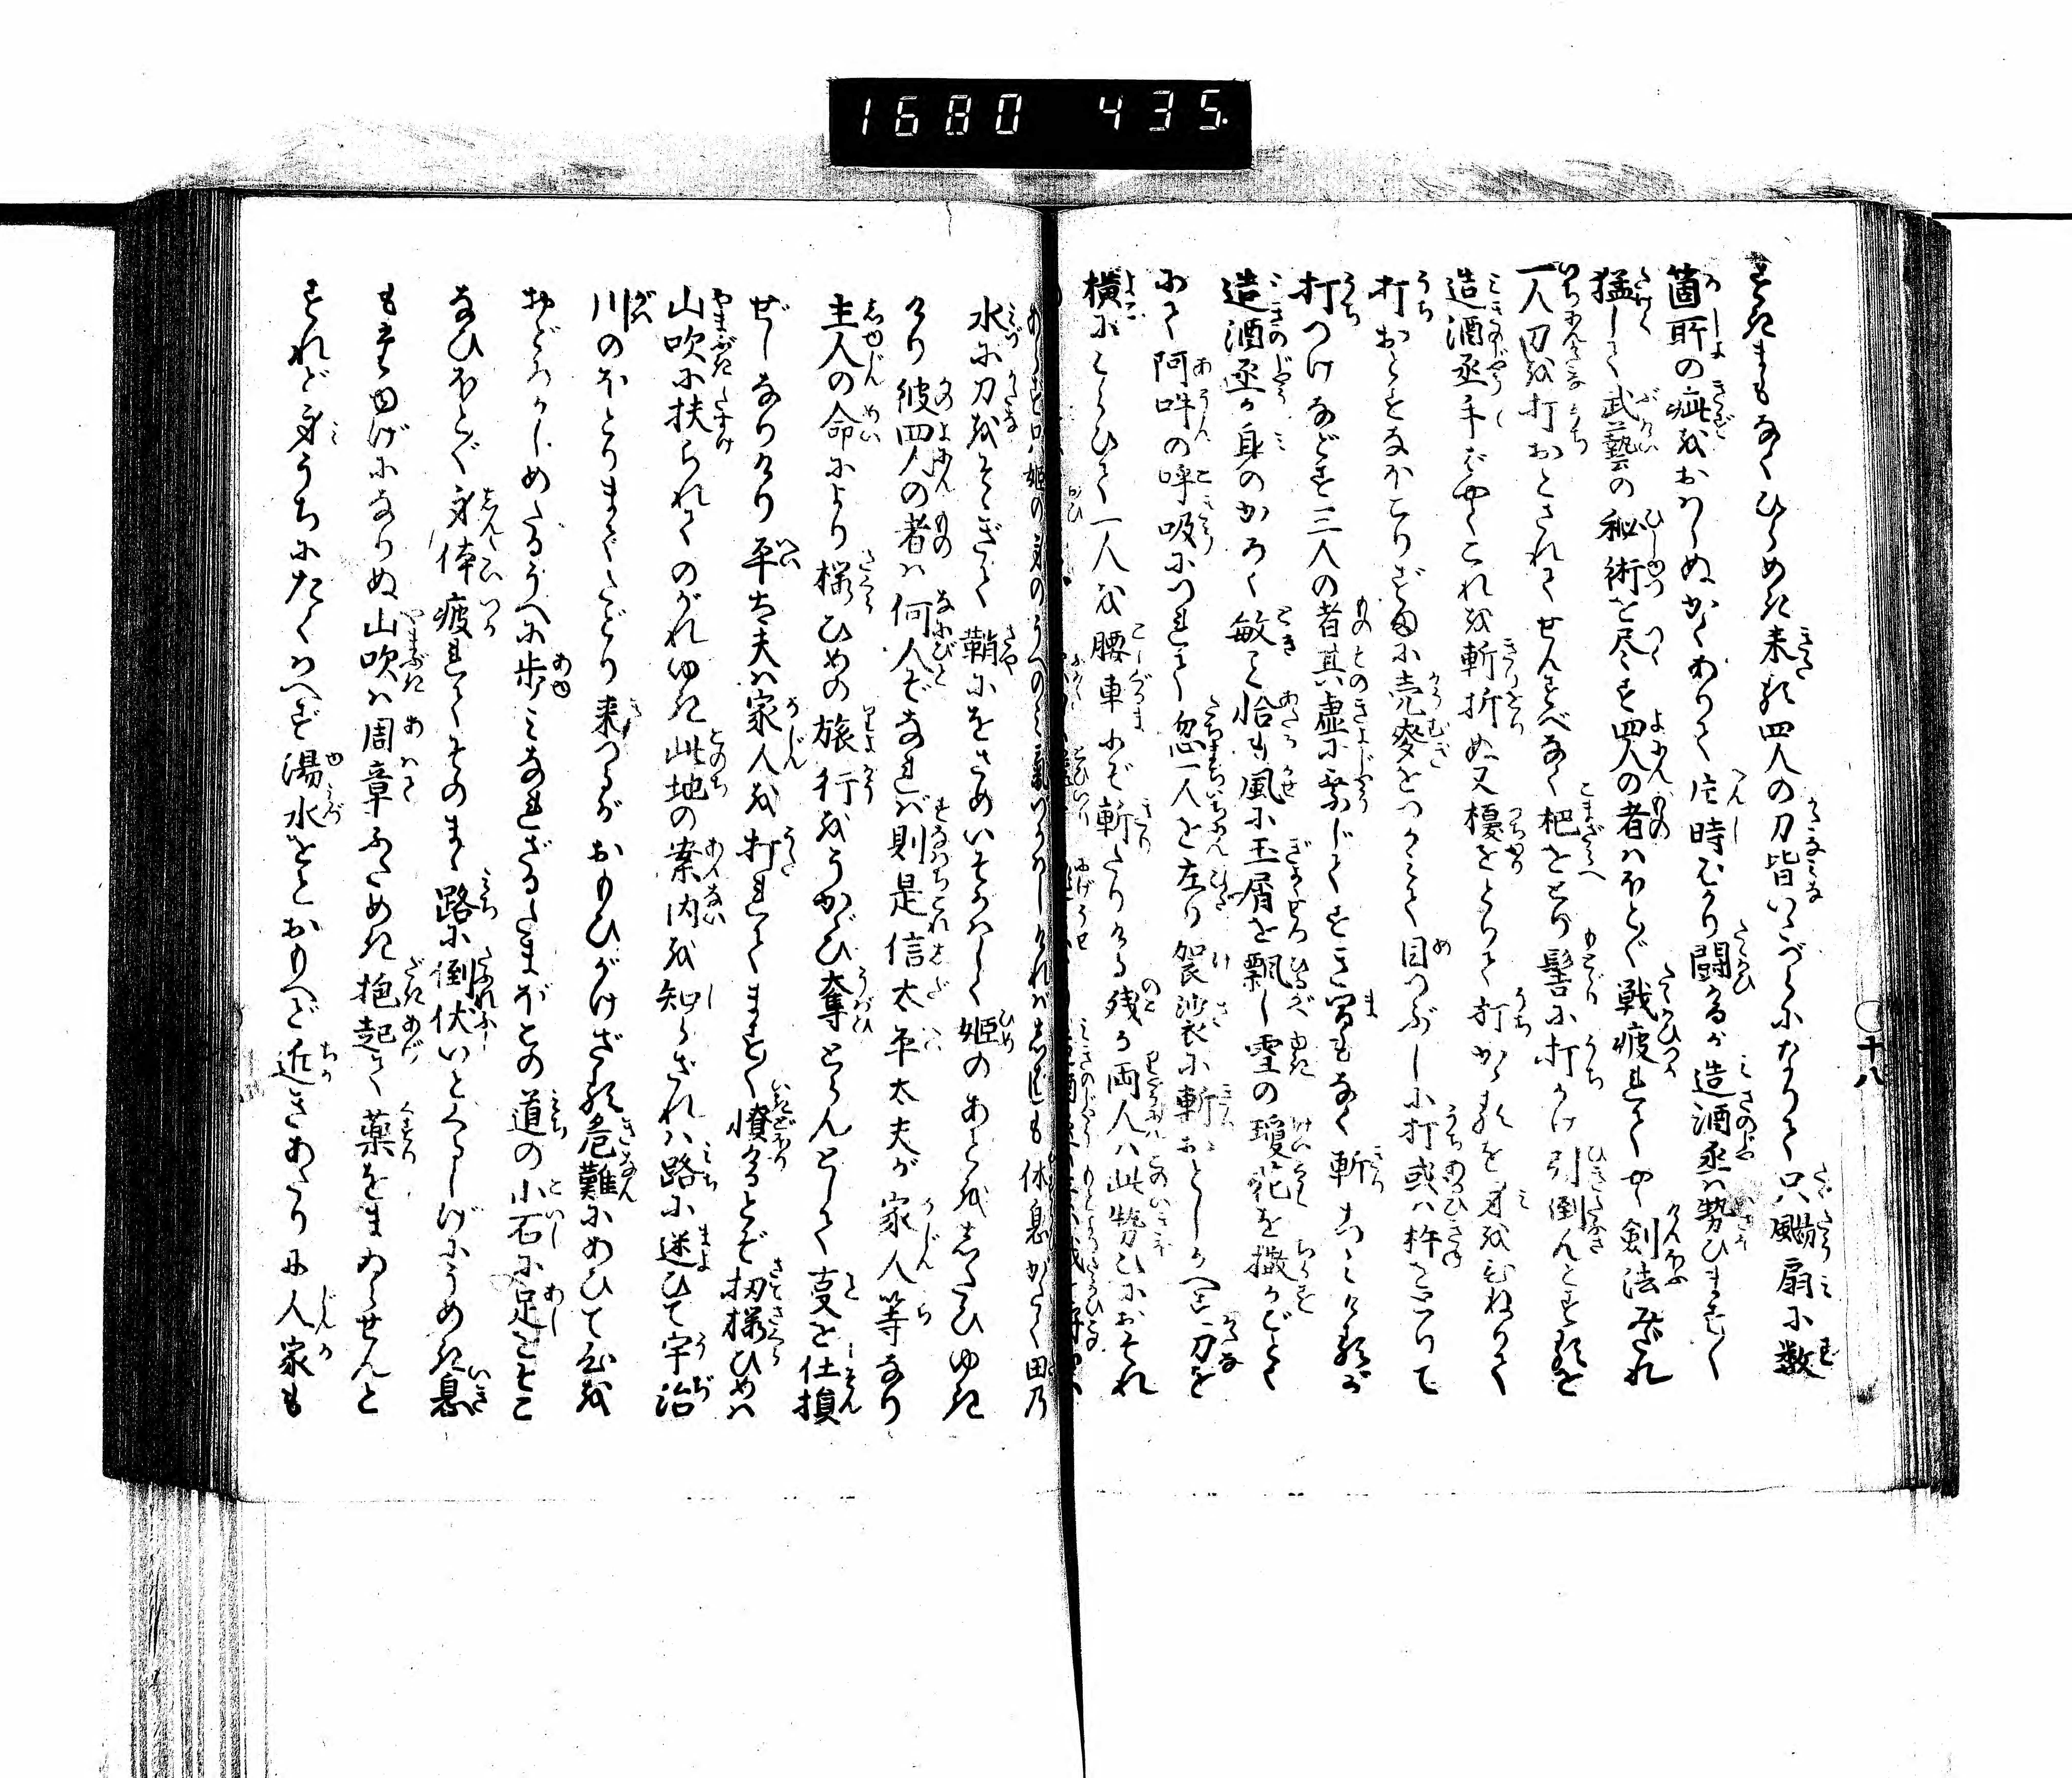 1680 435.
十八
すきまもなくひらめき来る四人の刀皆いたづらになりて只颺扇に数
箇所の疵をおはしぬかくありて片時ばかり闘けるが造酒丞は勢ひますく
猛しく武藝の秘術を尽す四人の者はほとど戦疲れてや剣法みだれ
一人刀を打おとされてせんすべなく杷をとり髻に打かけ引倒んとするを
造酒丞手ばやくこれを斬折ぬ又櫌をとりて打かゝるを身をひねりて
打おとすなほこりずまに売麥をつかみて目つぶしに打或は杵をとりて
打つけなどす三人の者其虚に乗じてすき間もなく斬こみけるが
造酒丞が身のかろく敏こと恰も風に玉屑を飄し雪の瓊花を撒がごとく
にて阿吽の呼吸につれて忽一人を左り袈裟に斬おとしかへす刀を
横にはらひて一人を腰車にぞ斬たりける残る両人は此勢ひにおそれ
水に刀をそゝぎて鞘にをさめいそがはしく姫のあとをしたひゆき
けり彼四人の者は何人ぞなれば則是信太平太夫が家人等なり
主人の命により桜ひめの旅行をうかゞひ奪とらんとして支を仕損
ぜしなりけり平太夫は家人を打れてますく憤けるとぞ扨桜ひめは
山吹に扶られてのがれゆき此地の案内を知らざれは路に迷ひて宇治
川のほとりまでたどり来つるがおもひがけざる危難にあひて心を
おどろかしめたるうへに歩ミなれざるたまぼこの道の小石に足をそこ
なひほとど身体疲れてそのまゝ路に倒伏いとくるしげにうめき息
もたゆげになりぬ山吹は周章ふためき抱起て薬をまゐらせんと
すれど身うちにたくはへず湯水をとおもへど近きあたりに人家も